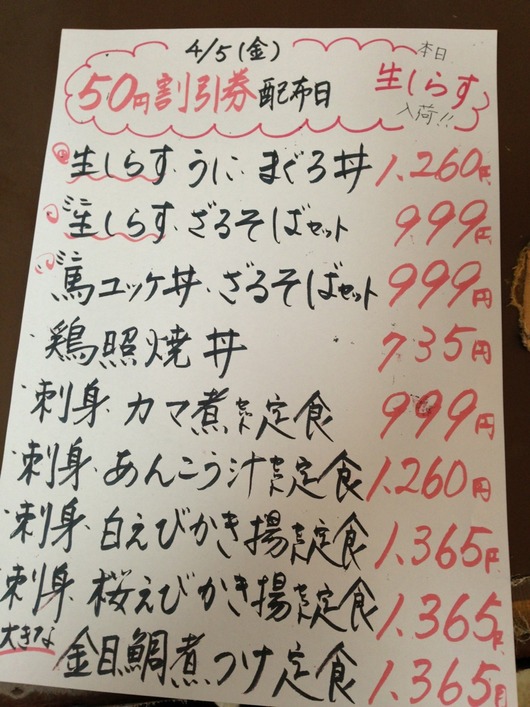 4/5(金)
50円割引券配布日
本日
生しらす
入荷!!
生しらす・うに・まぐろ丼 1,260円
ミニ生しらす・ざるそばセット 999円
ミニ馬ユッケ丼・ざるそばセット 999円
鶏照焼丼 735円
刺身・カマ煮セット定食 999円
刺身・あんこう汁セット定食 1,260円
刺身・白えびかき揚セット定食 1,365円
刺身・桜えびかき揚セット定食 1,365円
大きな金目鯛煮つけ定食 1,365円